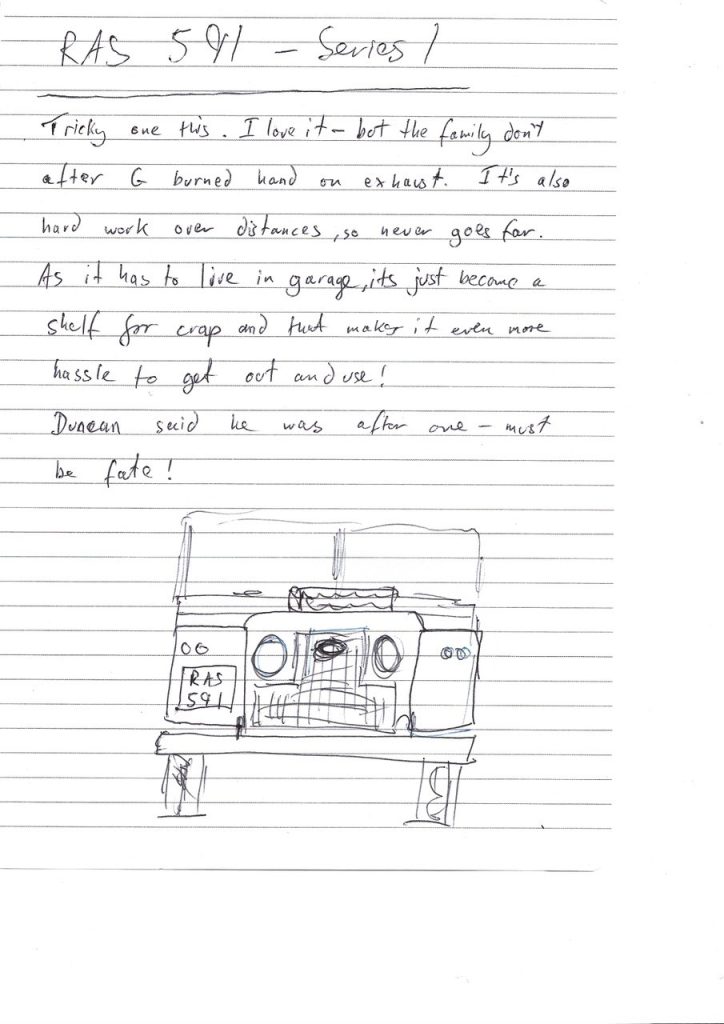 RAS 591 - Series 1
Tricky one this. I love it - but the family don't
after G burned hand on exhaust. It's also
hard work over distances, so never goes far.
As it has to live in garage, its just become a
shelf for crap and that makes it even more
hassle to get out and use!
Duncan said he was after one - must
be fate!
RAS
591